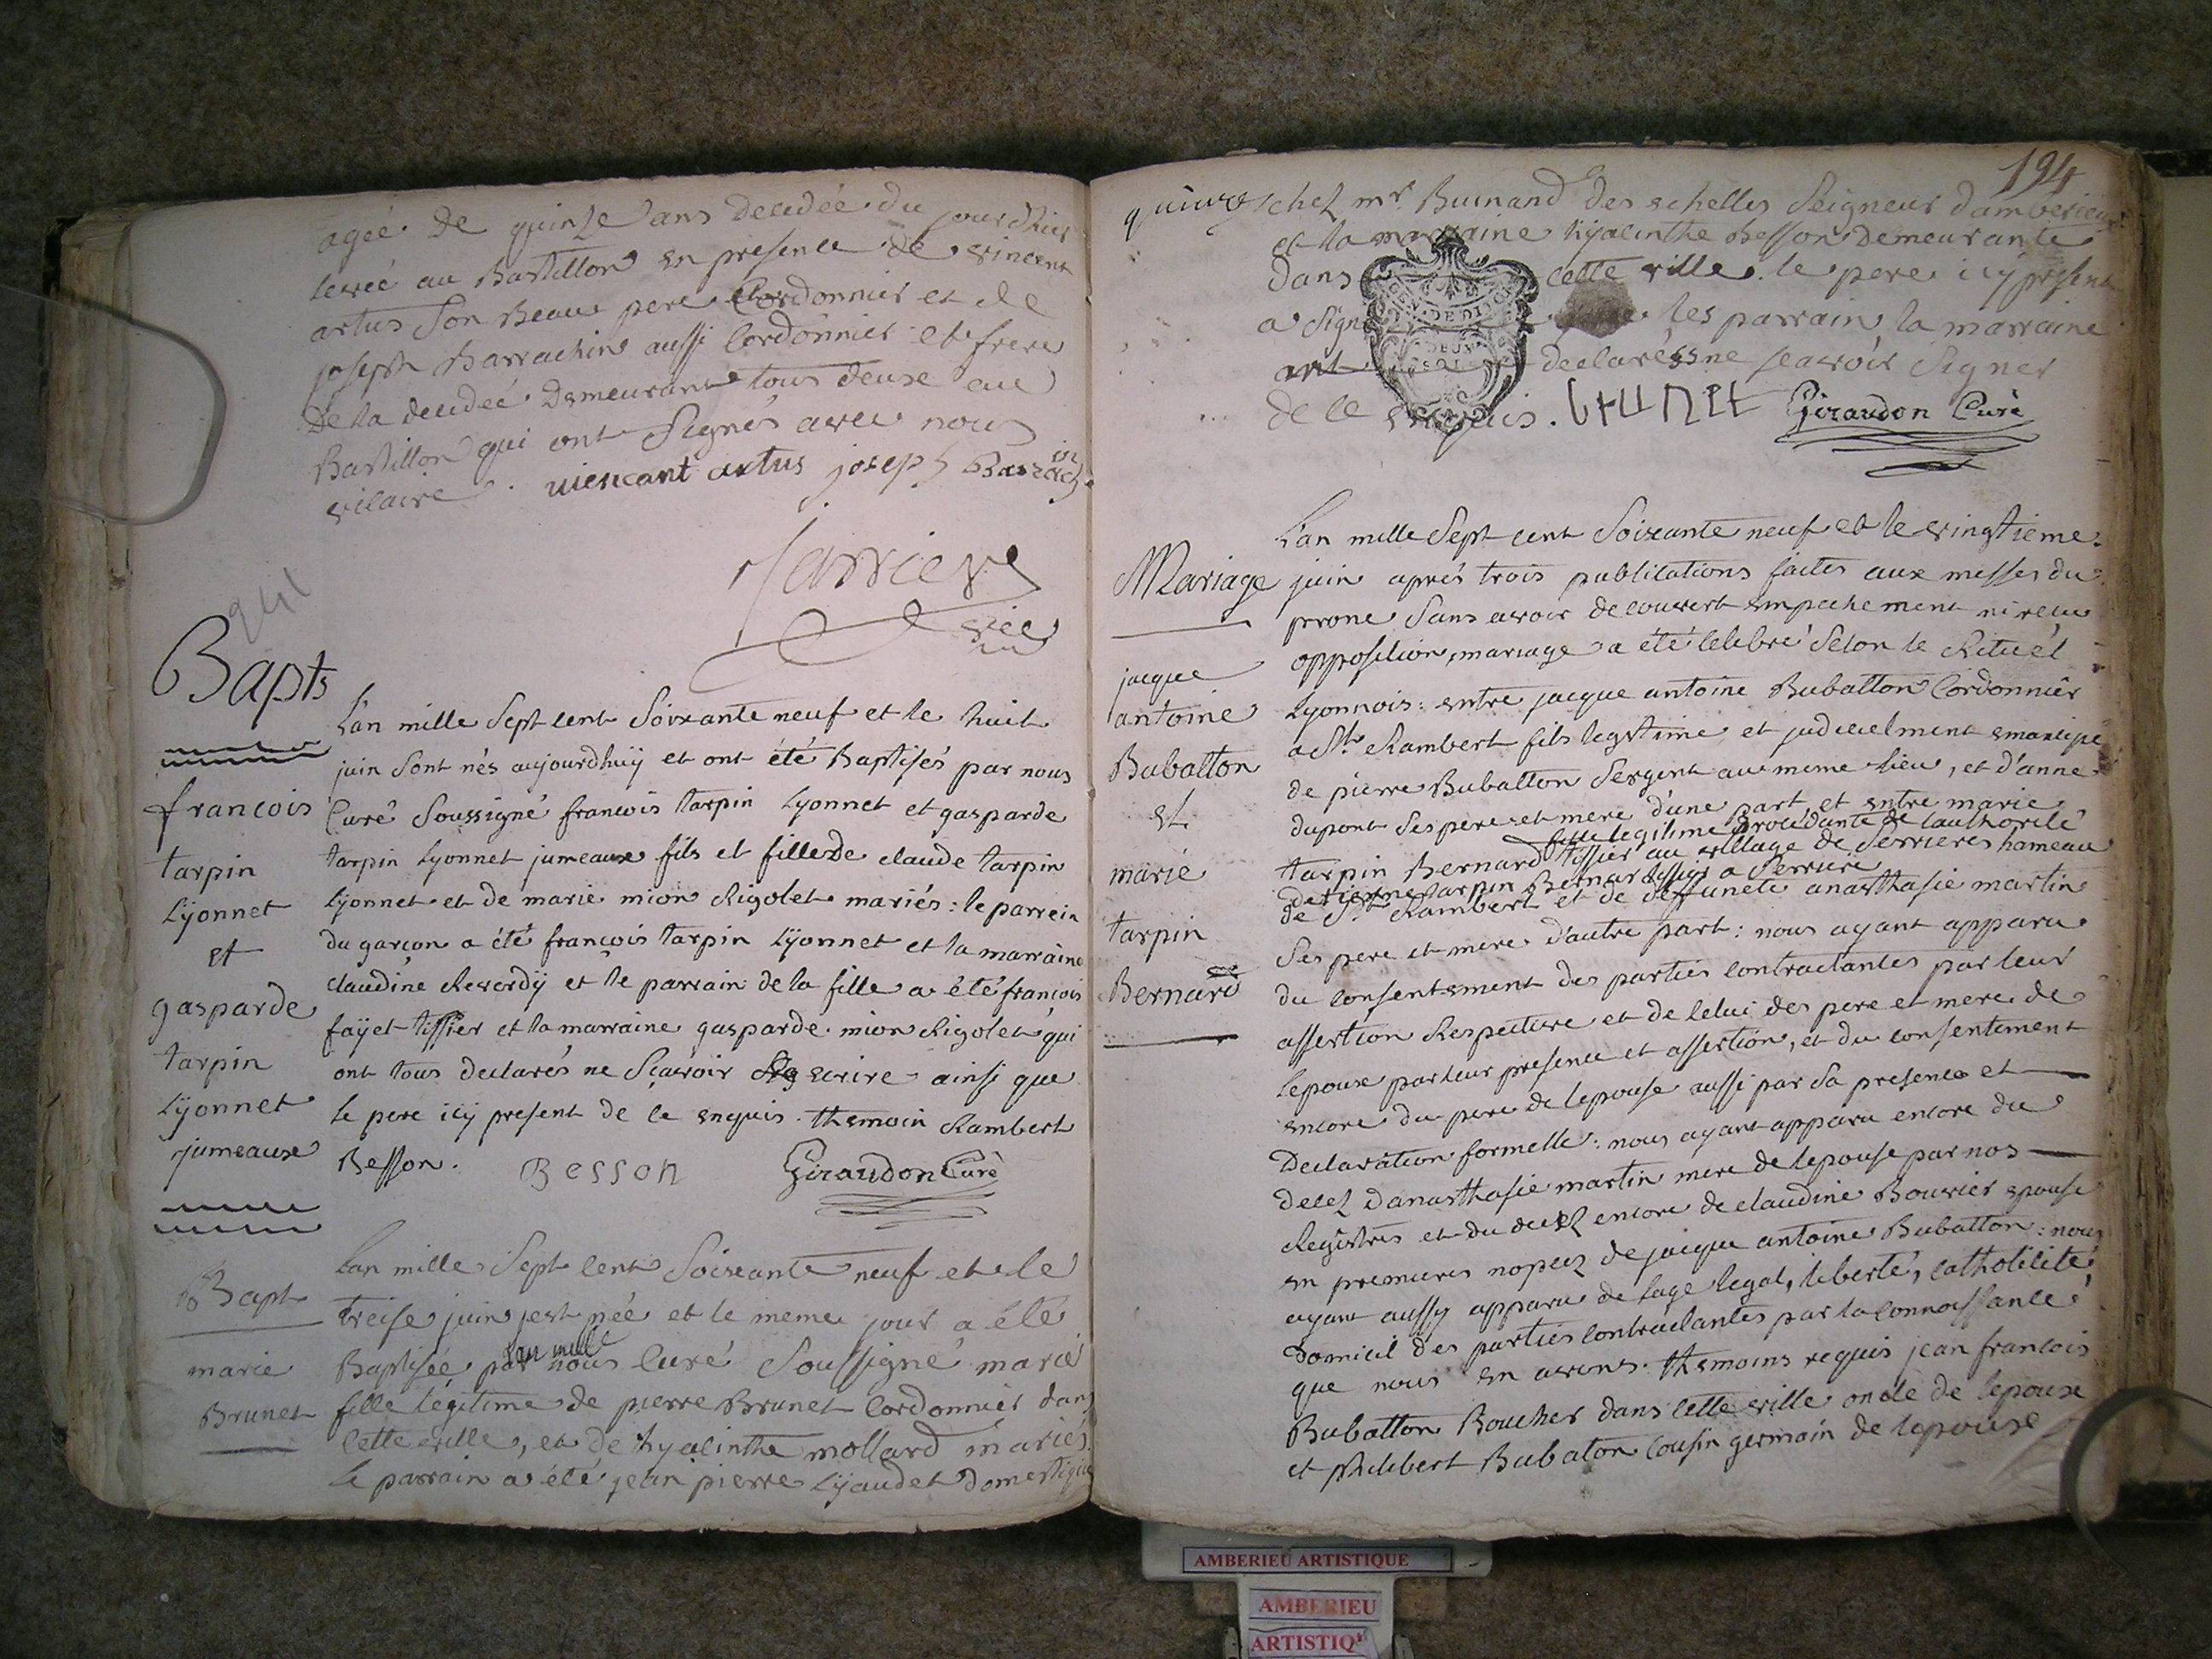 agée de quinze ans decedée du jour d'hier
au Bastillon en presence de vincent
artus son beau pere Cordonnier et de
joseph Barrachin aussi Cordonnier et frere
de la decedée demeurant tous deux au
Bastillon qui ont signés avec nous
vicaire. viencant artus joseph Barrachin
Jarrier
vic
Bapts
françois
tarpin
Lyonnet
et
gasparde
tarpin
Lyonnet
jumeaux
L'an mille sept cent soixante neuf et le huit
juin sont nés aujourdhuÿ et ont été Baptisés par nous
Curé soussigné françois tarpin Lyonnet et gasparde
tarpin Lyonnet jumeaux fils et fille de claude tarpin
Lyonnet et de marie mion Rigolet mariés: le parrein
du garçon a été françois tarpin Lÿonnet et la marraine
claudine Reverdÿ et le parrain de la fille a été françois
faÿet tissier et la marraine gasparde mion Rigolet qui
ont tous declarés ne sçavoir ecrire ainsi que
le pere icÿ present de ce enquis. themoin Rambert
Besson. Besson Giraudon Curé
Bapt
marie
Brunet
L'an mille sept cent soixante neuf et le
treise juin est née et le meme jour a été
Baptisée par nous Curé soussigné marie
fille légitime de pierre Brunet Cordonnier dans
cette ville, et de hyacinthe mollard mariés
le parrain a été jean pierre Lÿaudet domestique
194
chez mr. Buinand des echelles Seigneur damberieux
et la marraine hyacinthe Besson demeurante
dans cette ville. le pere icÿ present
a signé les parrain la marraine
ont declarés ne sçavoir signer
de ce enquis. Brunet Giraudon Curé
Mariage
jacque
antoine
Bubatton
et
marie
tarpin
Bernard
L'an mille sept cent soixante neuf et le vingtieme
juin aprés trois publications faites aux messes du
prone sans avoir decouvert empechement ni reçu
opposition, mariage a été celebré selon le Rituel
Lyonnois: entre jacque antoine Bubatton Cordonnier
a St. Rambert fils legitime et judiciel­ment emancipé
de pierre Bubatton Sergent au meme lieu, et d'anne
dupont ses pere et mere d'une part, et entre marie
fille legitime procedante de l'authorité
tarpin Bernard tissier au village de Serrieres hameau
de tarpin Bernard a Serriere
de St. Rambert et de deffuncte anasthasie martin
ses pere et mere d'autre part: nous ayant apparu
du consentement des parties contractantes par leur
assertion Respective et de celui des pere et mere de
lepoux par leur presence et assertion, et du consentement
encore du pere de lepouse aussi par sa presence et
declaration formelle: nous ayant apparu encore du
decez danasthasie martin mere de lepouse par nos
Registres et du decez encore de claudine Bouvier epouse
en premieres nopcez de jacque antoine Bubatton: nous
ayant aussy apparu de lage legal, liberté, catholicité,
domicil des parties contractantes par la connoissance
que nous en avons. themoins requis jean françois
Bubatton Boucher dans cette ville oncle de lepoux
et philibert Bubaton cousin germain de lepoux
AMBERIEU ARTISTIQUE
AMBERIEU
ARTISTIQ